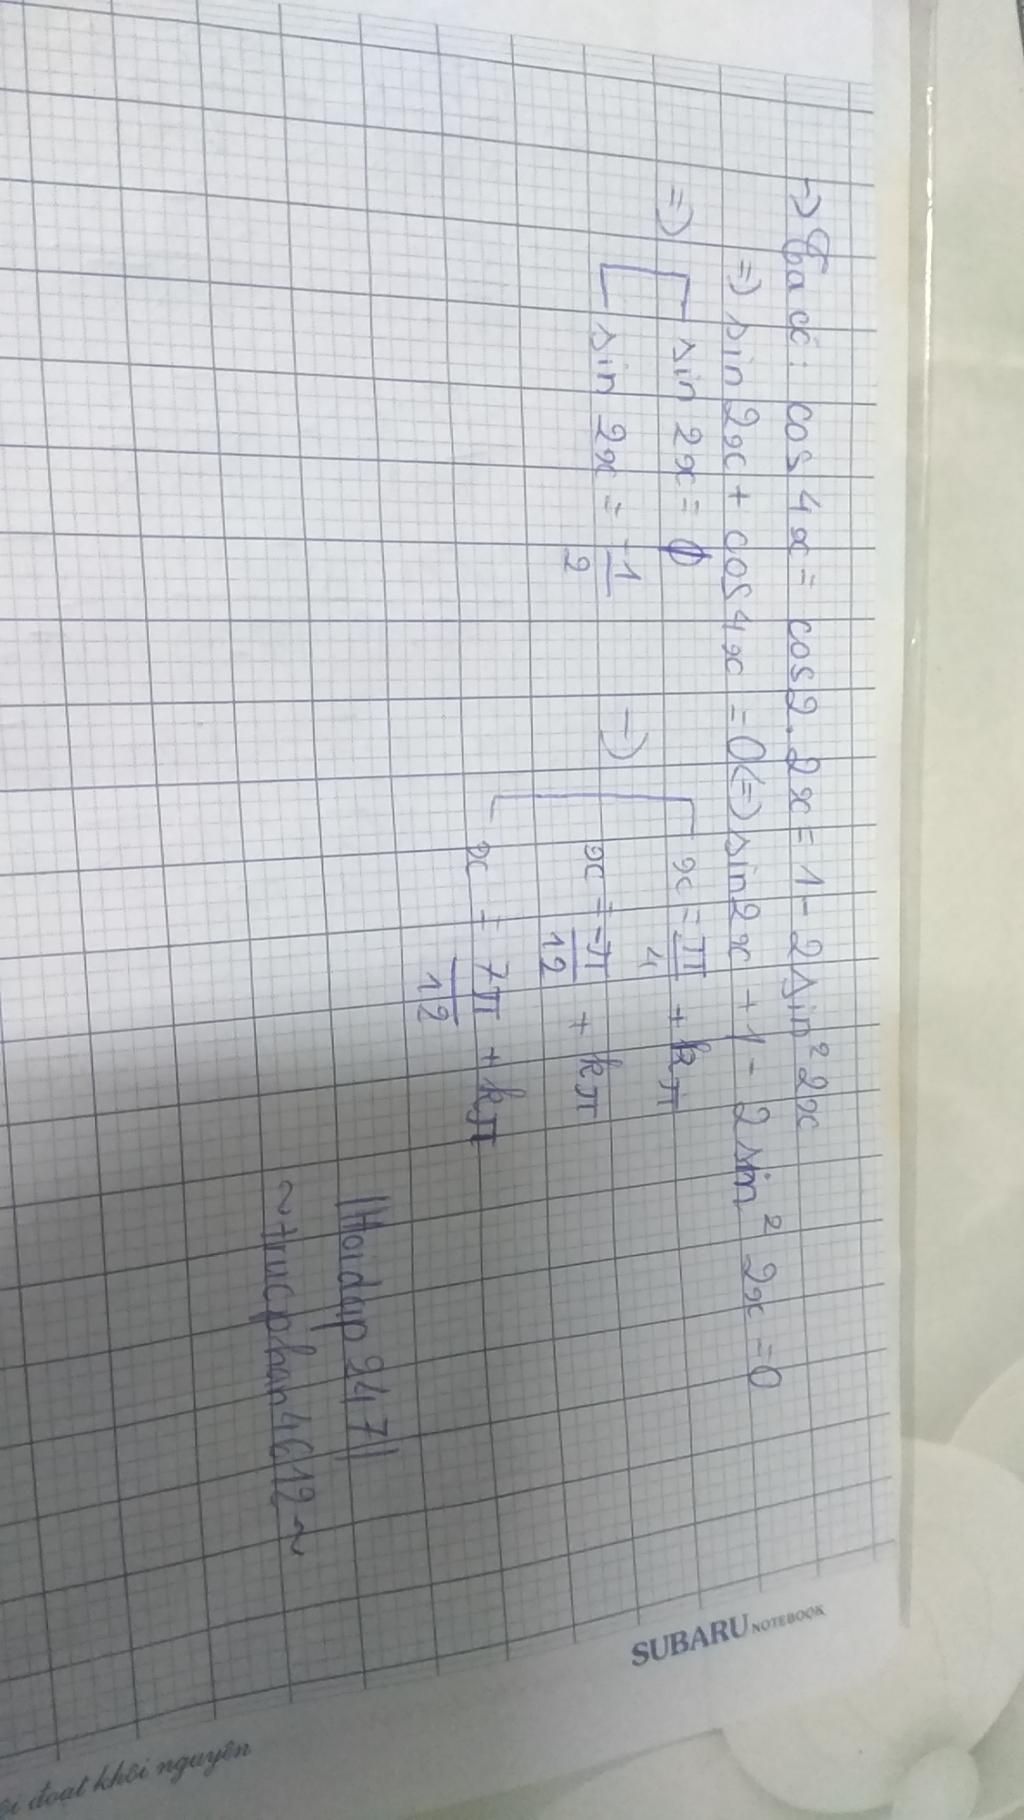 → Ta có: cos 4x = cos 2.2x = 1 - 2sin² 2x
=> sin 2x + cos 4x = 0 (=) sin 2x + 1 - 2 sin² 2x = 0
=> [ sin 2x = 0
[ sin 2x = -1/2
→ [ x = π/4 + kπ
x = -π/12 + kπ
x = 7π/12 + kπ
||Hoidap247||
~trucphan4612~
SUBARU NOTEBOOK
đoạt khôi nguyên